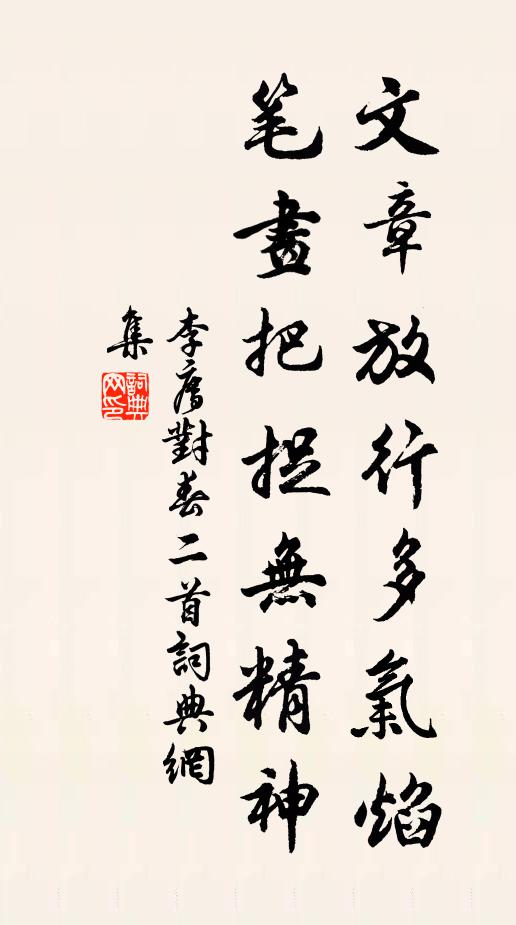 文章放行多氣焰
笔畫把捉無精神
李廌對春二首詞典網
集
詞典网印